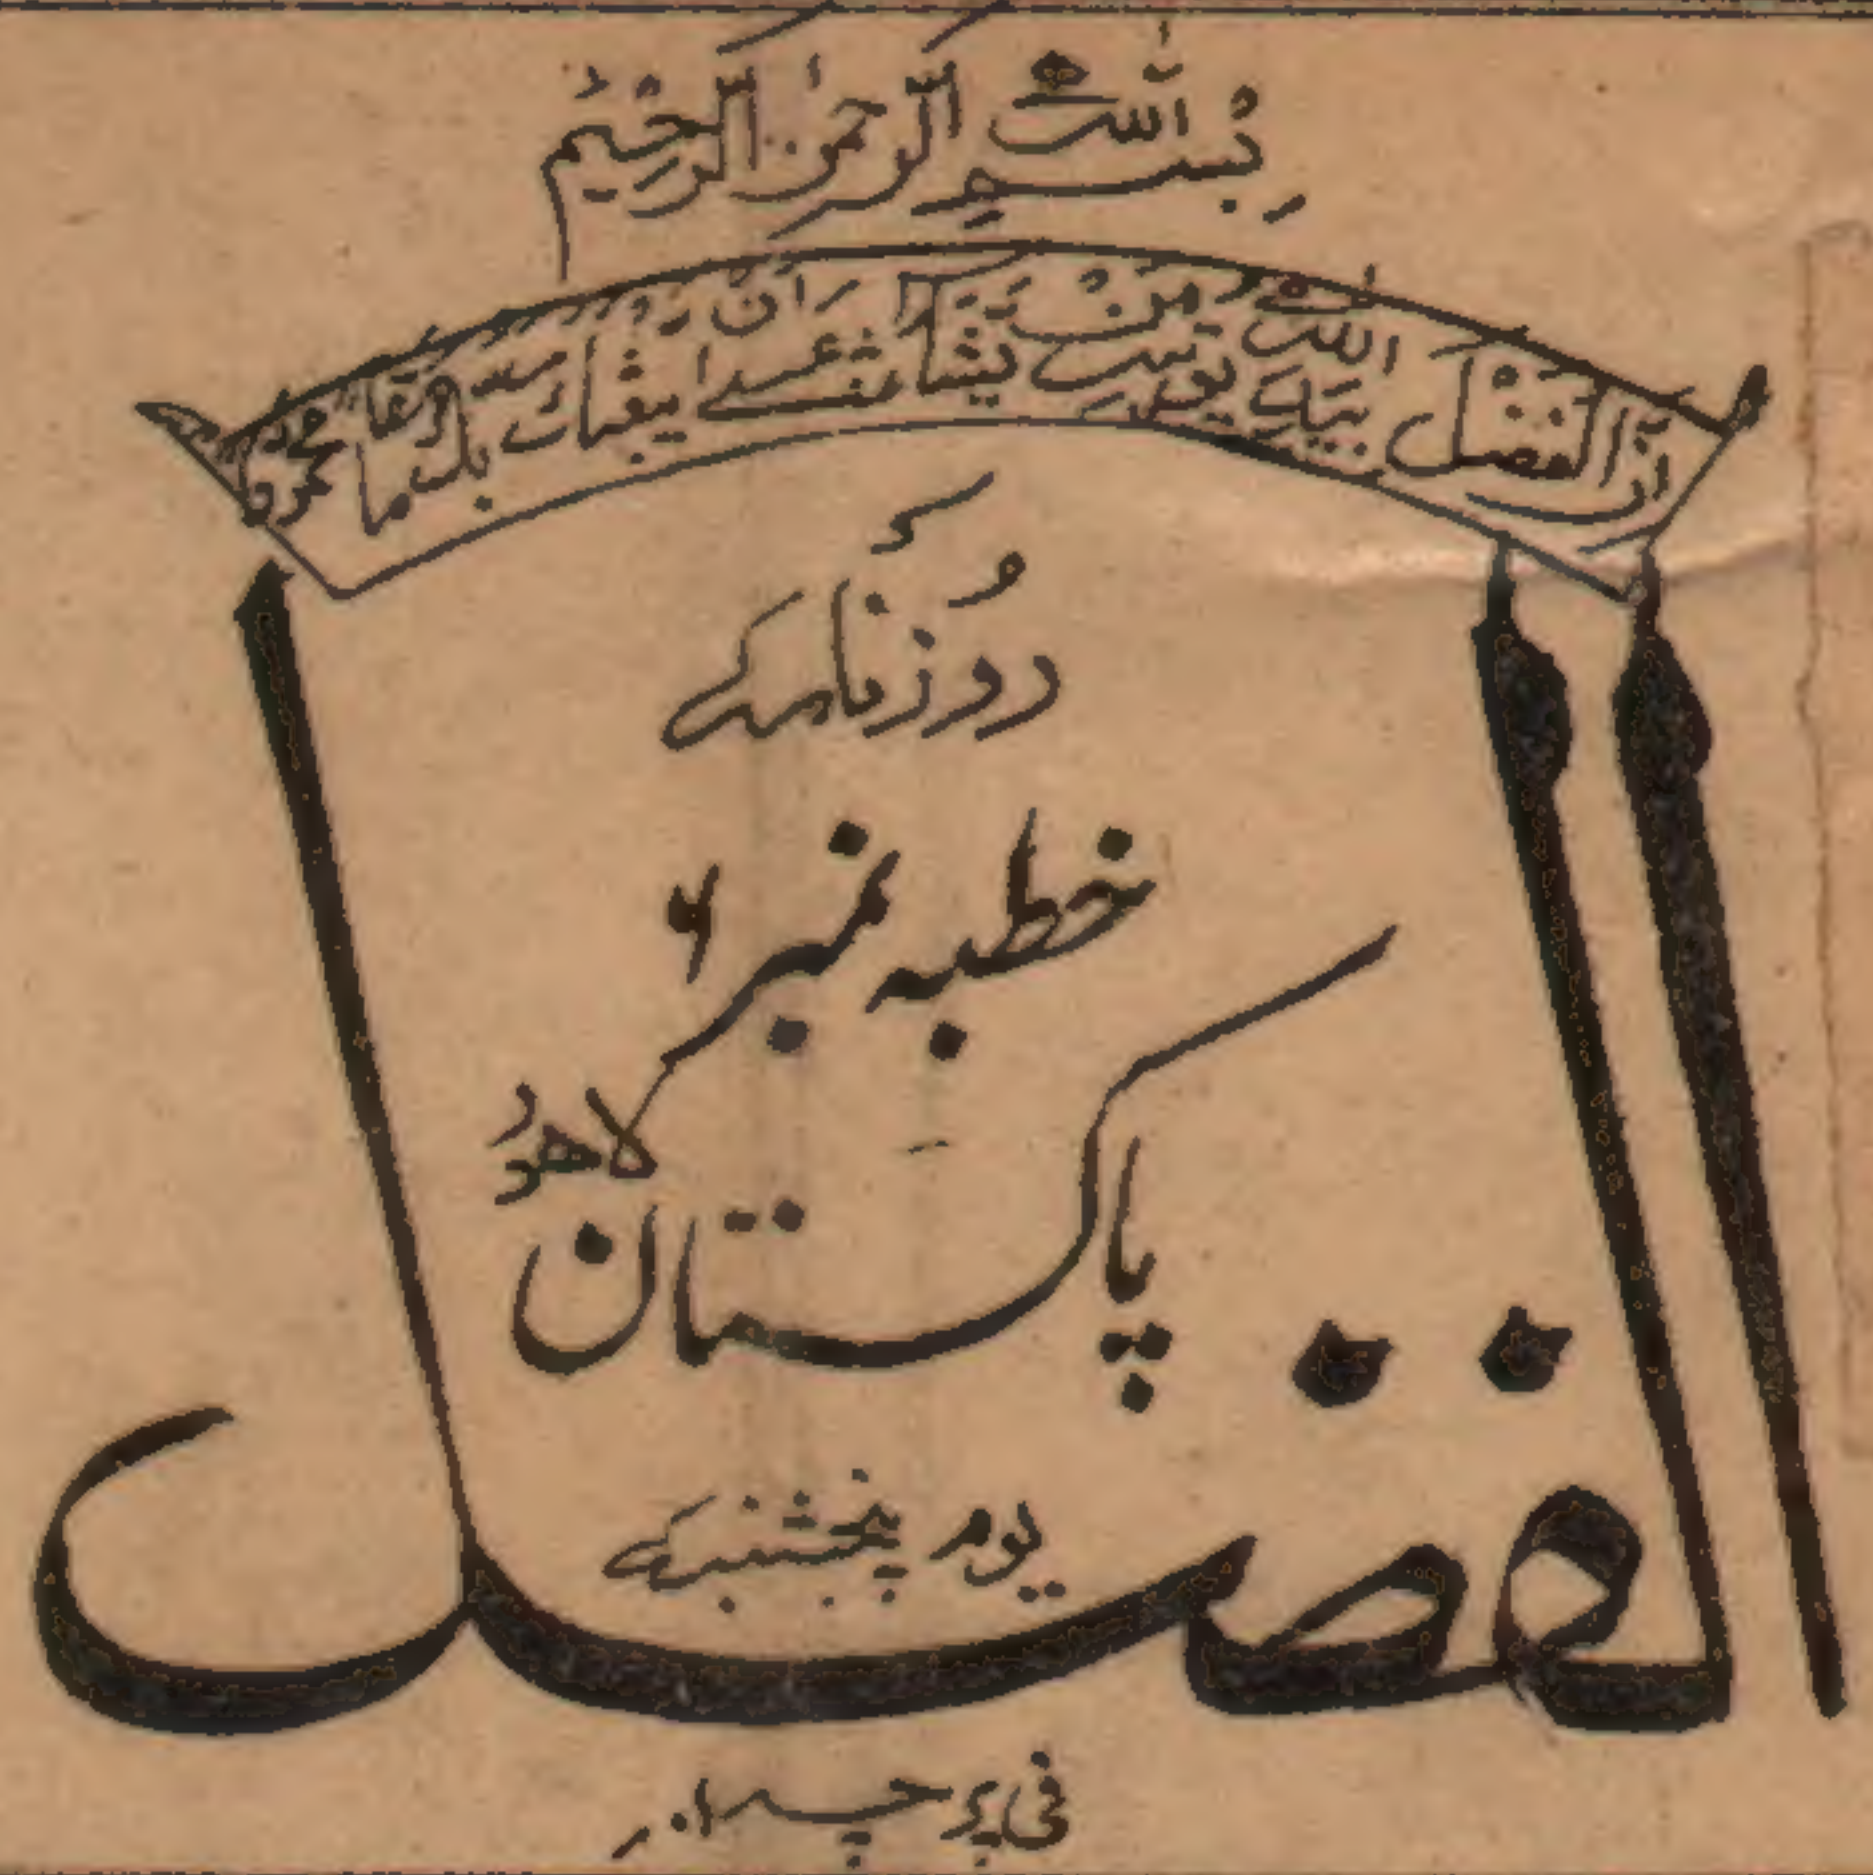 بِسْمِ اللّٰهِ الرَّحْمٰنِ الرَّحِيْمِ
اِنَّ الْفَضْلَ بِيَدِ اللّٰهِ يُؤْتِيْهِ مَنْ يَّشَآءُ عَسٰۤى اَنْ يَّبْعَثَكَ رَبُّكَ مَقَامًا مَّحْمُوْدًا
روزنامہ
خطبہ نمبر ۶
لاہور
پاکستان
الفضل
یوم پنجشنبہ
فی پرچہ ۱۰؍